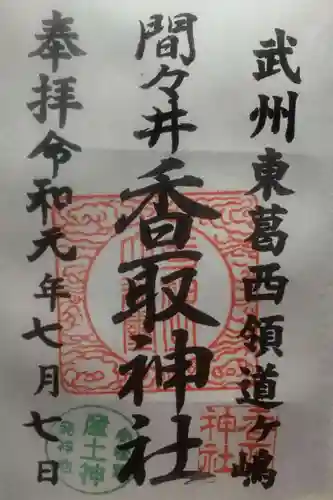 武州東葛西領道ヶ嶋
間々井
香取神社
奉拝令和元年七月七日
香取神社
産土神